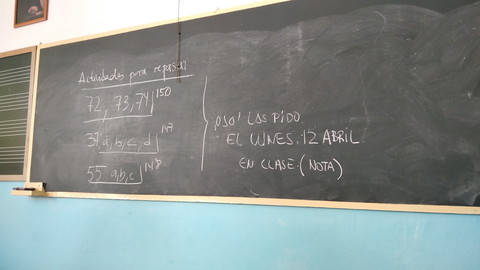 Actividades para repasar
72, 73, 74 150
37 a, b, c, d 147
55 a, b, c 148
¡OJO! LAS PIDO
EL LUNES 12 ABRIL
EN CLASE. (NOTA)